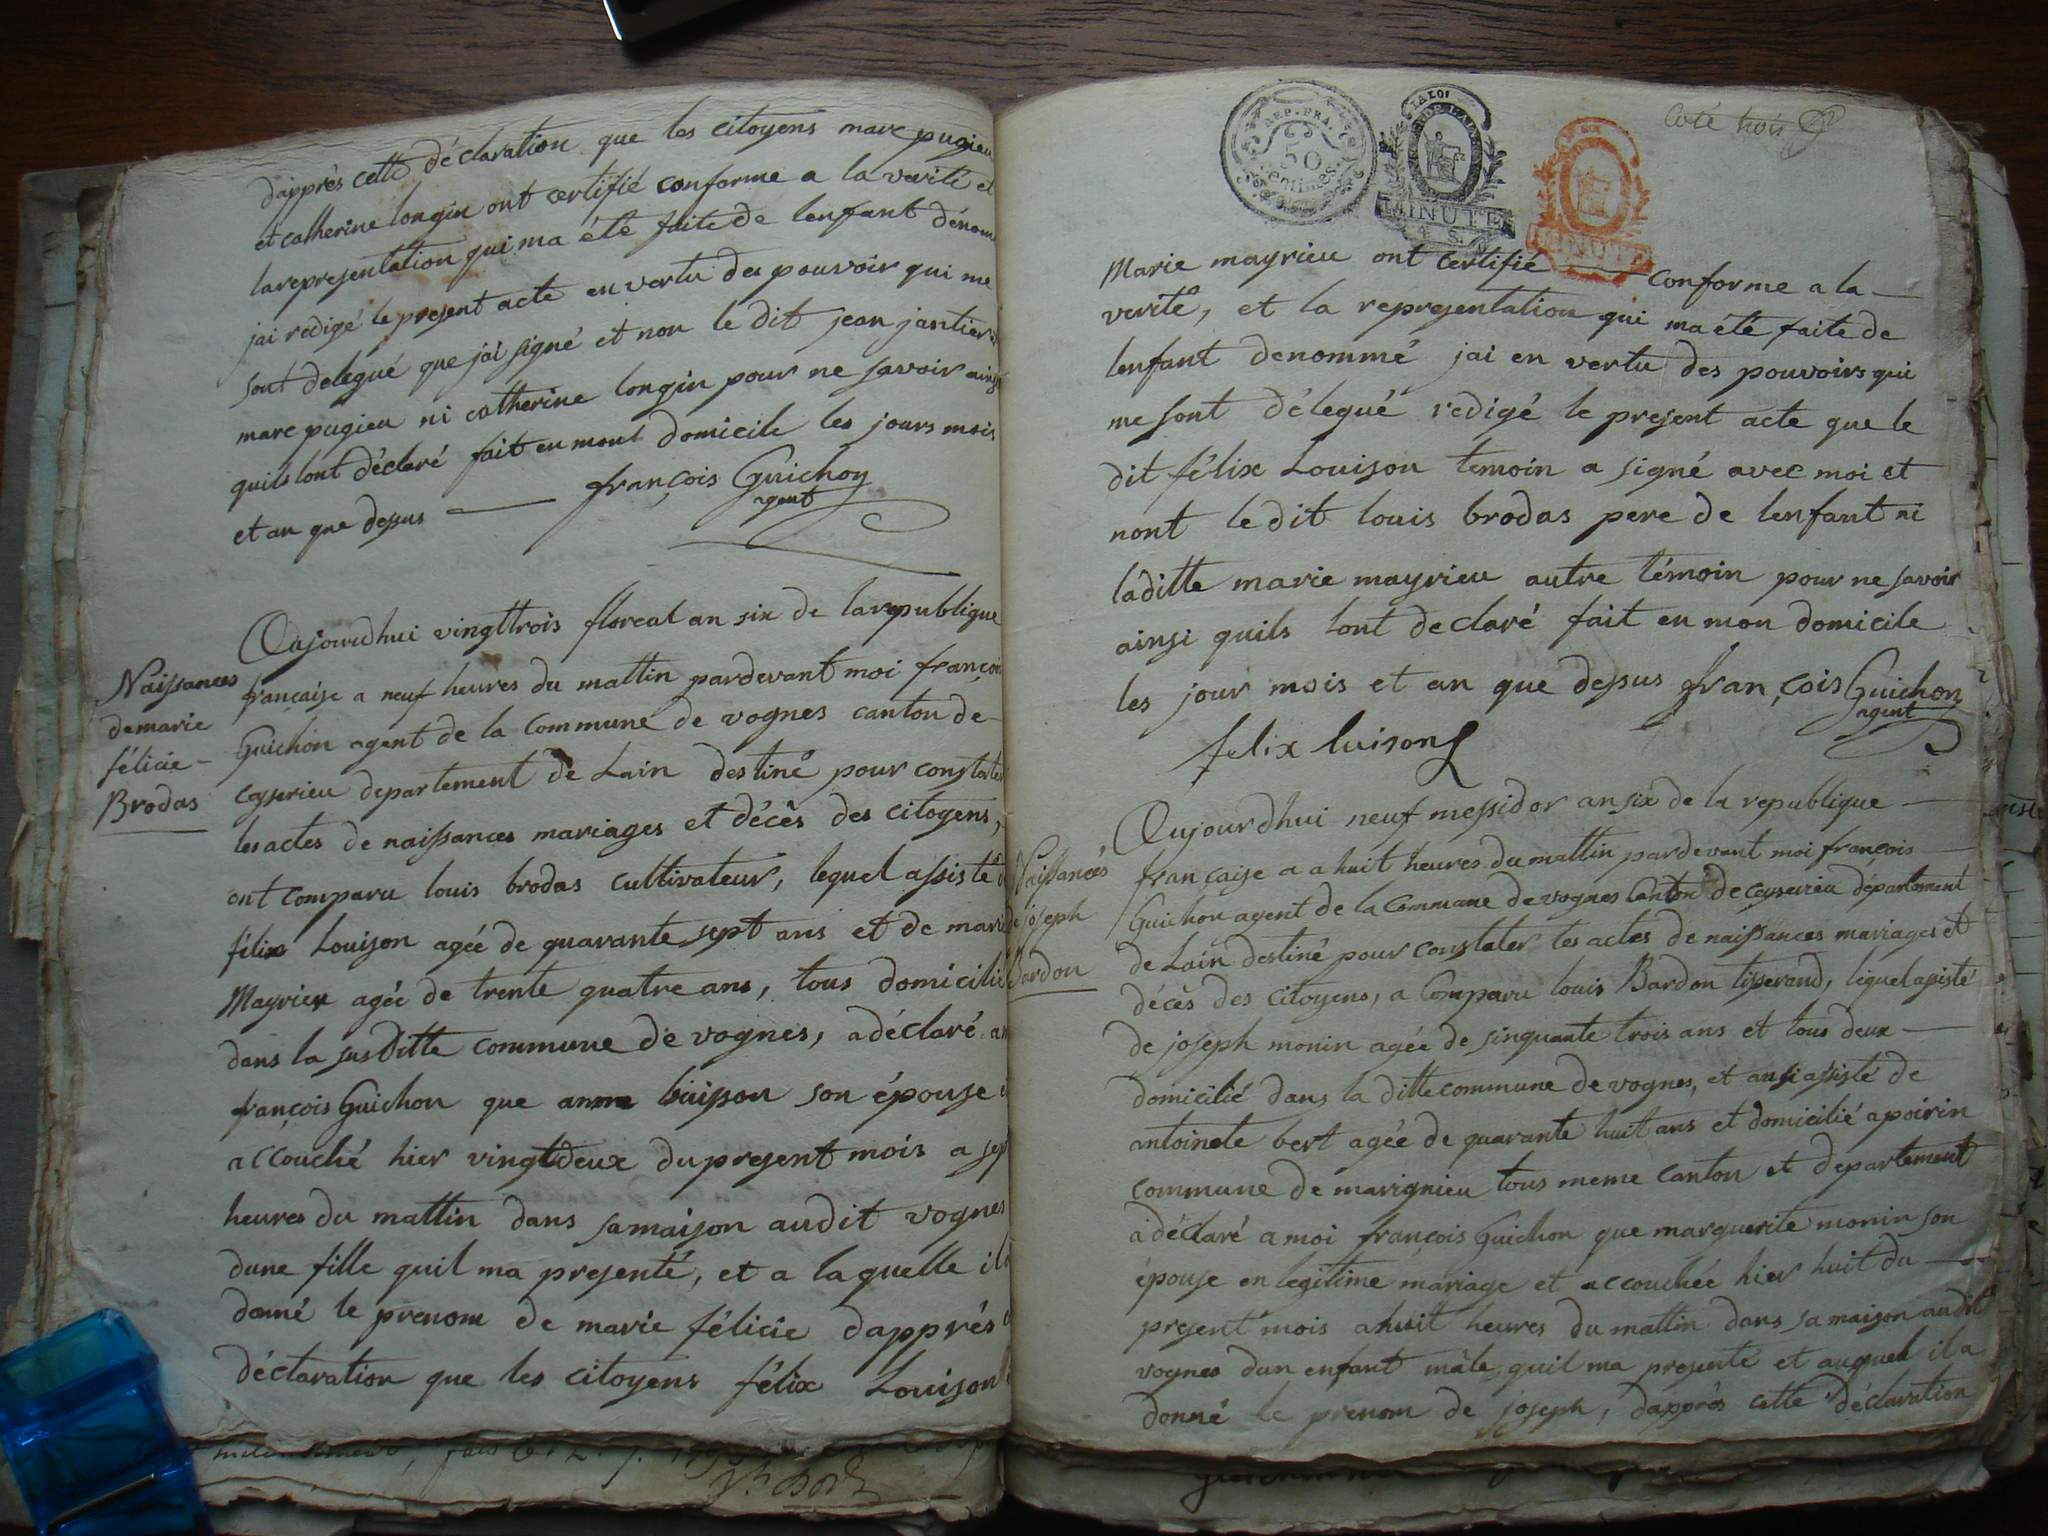 dapprès cette déclaration que les citoyens marc pugieu
et catherine longin ont certifié conforme a la verité et
la representation qui ma été faite de lenfant dénom
jai redigé le present acte en vertu des pouvoir qui me
sont delegué que jai signé et non le dit jean jantier
marc pugieu ni catherine longin pour ne savoir ainsi
quils lont déclaré fait en mont domicile les jours mois
et an que dessus françois Guichon
agent
Naissances
de marie
félicie
Brodas
Aujourdhui vingttrois floreal an six de la republique
française a neuf heures du mattin pardevant moi françois
Guichon agent de la commune de vognes canton de
ceyserieu departement de Lain destiné pour constater
les actes de naissances mariages et décês des citoyens,
ont comparu louis brodas cultivateur, lequel assisté
félix Louison agée de quarante sept ans et de marie
Mayrieu agée de trente quatre ans, tous domicilié
dans la sus ditte commune de vognes, a déclaré a
françois Guichon que anne buisson son épouse
accouché hier vingtdeux du present mois a sept
heures du mattin dans sa maison audit vognes
dune fille quil ma presenté, et a laquelle il
donné le prenom de marie félicie dapprés
déclaration que les citoyens félix Louison
REP. FRA.
50
centimes
LA LOI
MINUTE
MINUTE
Coté trois
Marie mayrieu ont certifié conforme a la
verité, et la representation qui ma été faite de
lenfant denommé jai en vertu des pouvoirs qui
me sont délegué redigé le present acte que le
dit félix Louison temoin a signé avec moi et
nont le dit louis brodas pere de lenfant ni
laditte marie mayrieu autre témoin pour ne savoir
ainsi quils lont declaré fait en mon domicile
les jour mois et an que dessus françois Guichon
agent
felix luison
Naissances
de joseph
Bardon
Aujourdhui neuf messidor an six de la republique
française a a huit heures du mattin pardevant moi françois
Guichon agent de la commune de vognes Canton de ceyserieu département
de Lain destiné pour constater les actes de naissances mariages et
décês des citoyens, a comparu louis Bardon tisserand, lequel assisté
de joseph monin agée de sinquante trois ans et tous deux
domicilié dans la ditte commune de vognes, et ausi assisté de
antoinete bert agée de quarante huit ans et domicilié a poirin
commune de marignieu tous meme canton et departement
a déclaré a moi françois Guichon que marguerite monin son
épouse en legitime mariage et accouchée hier huit du
present mois a huit heures du mattin dans sa maison audit
vognes dun enfant mâle quil ma presenté et auquel il a
donné le prenom de joseph, dapprès cette déclaration